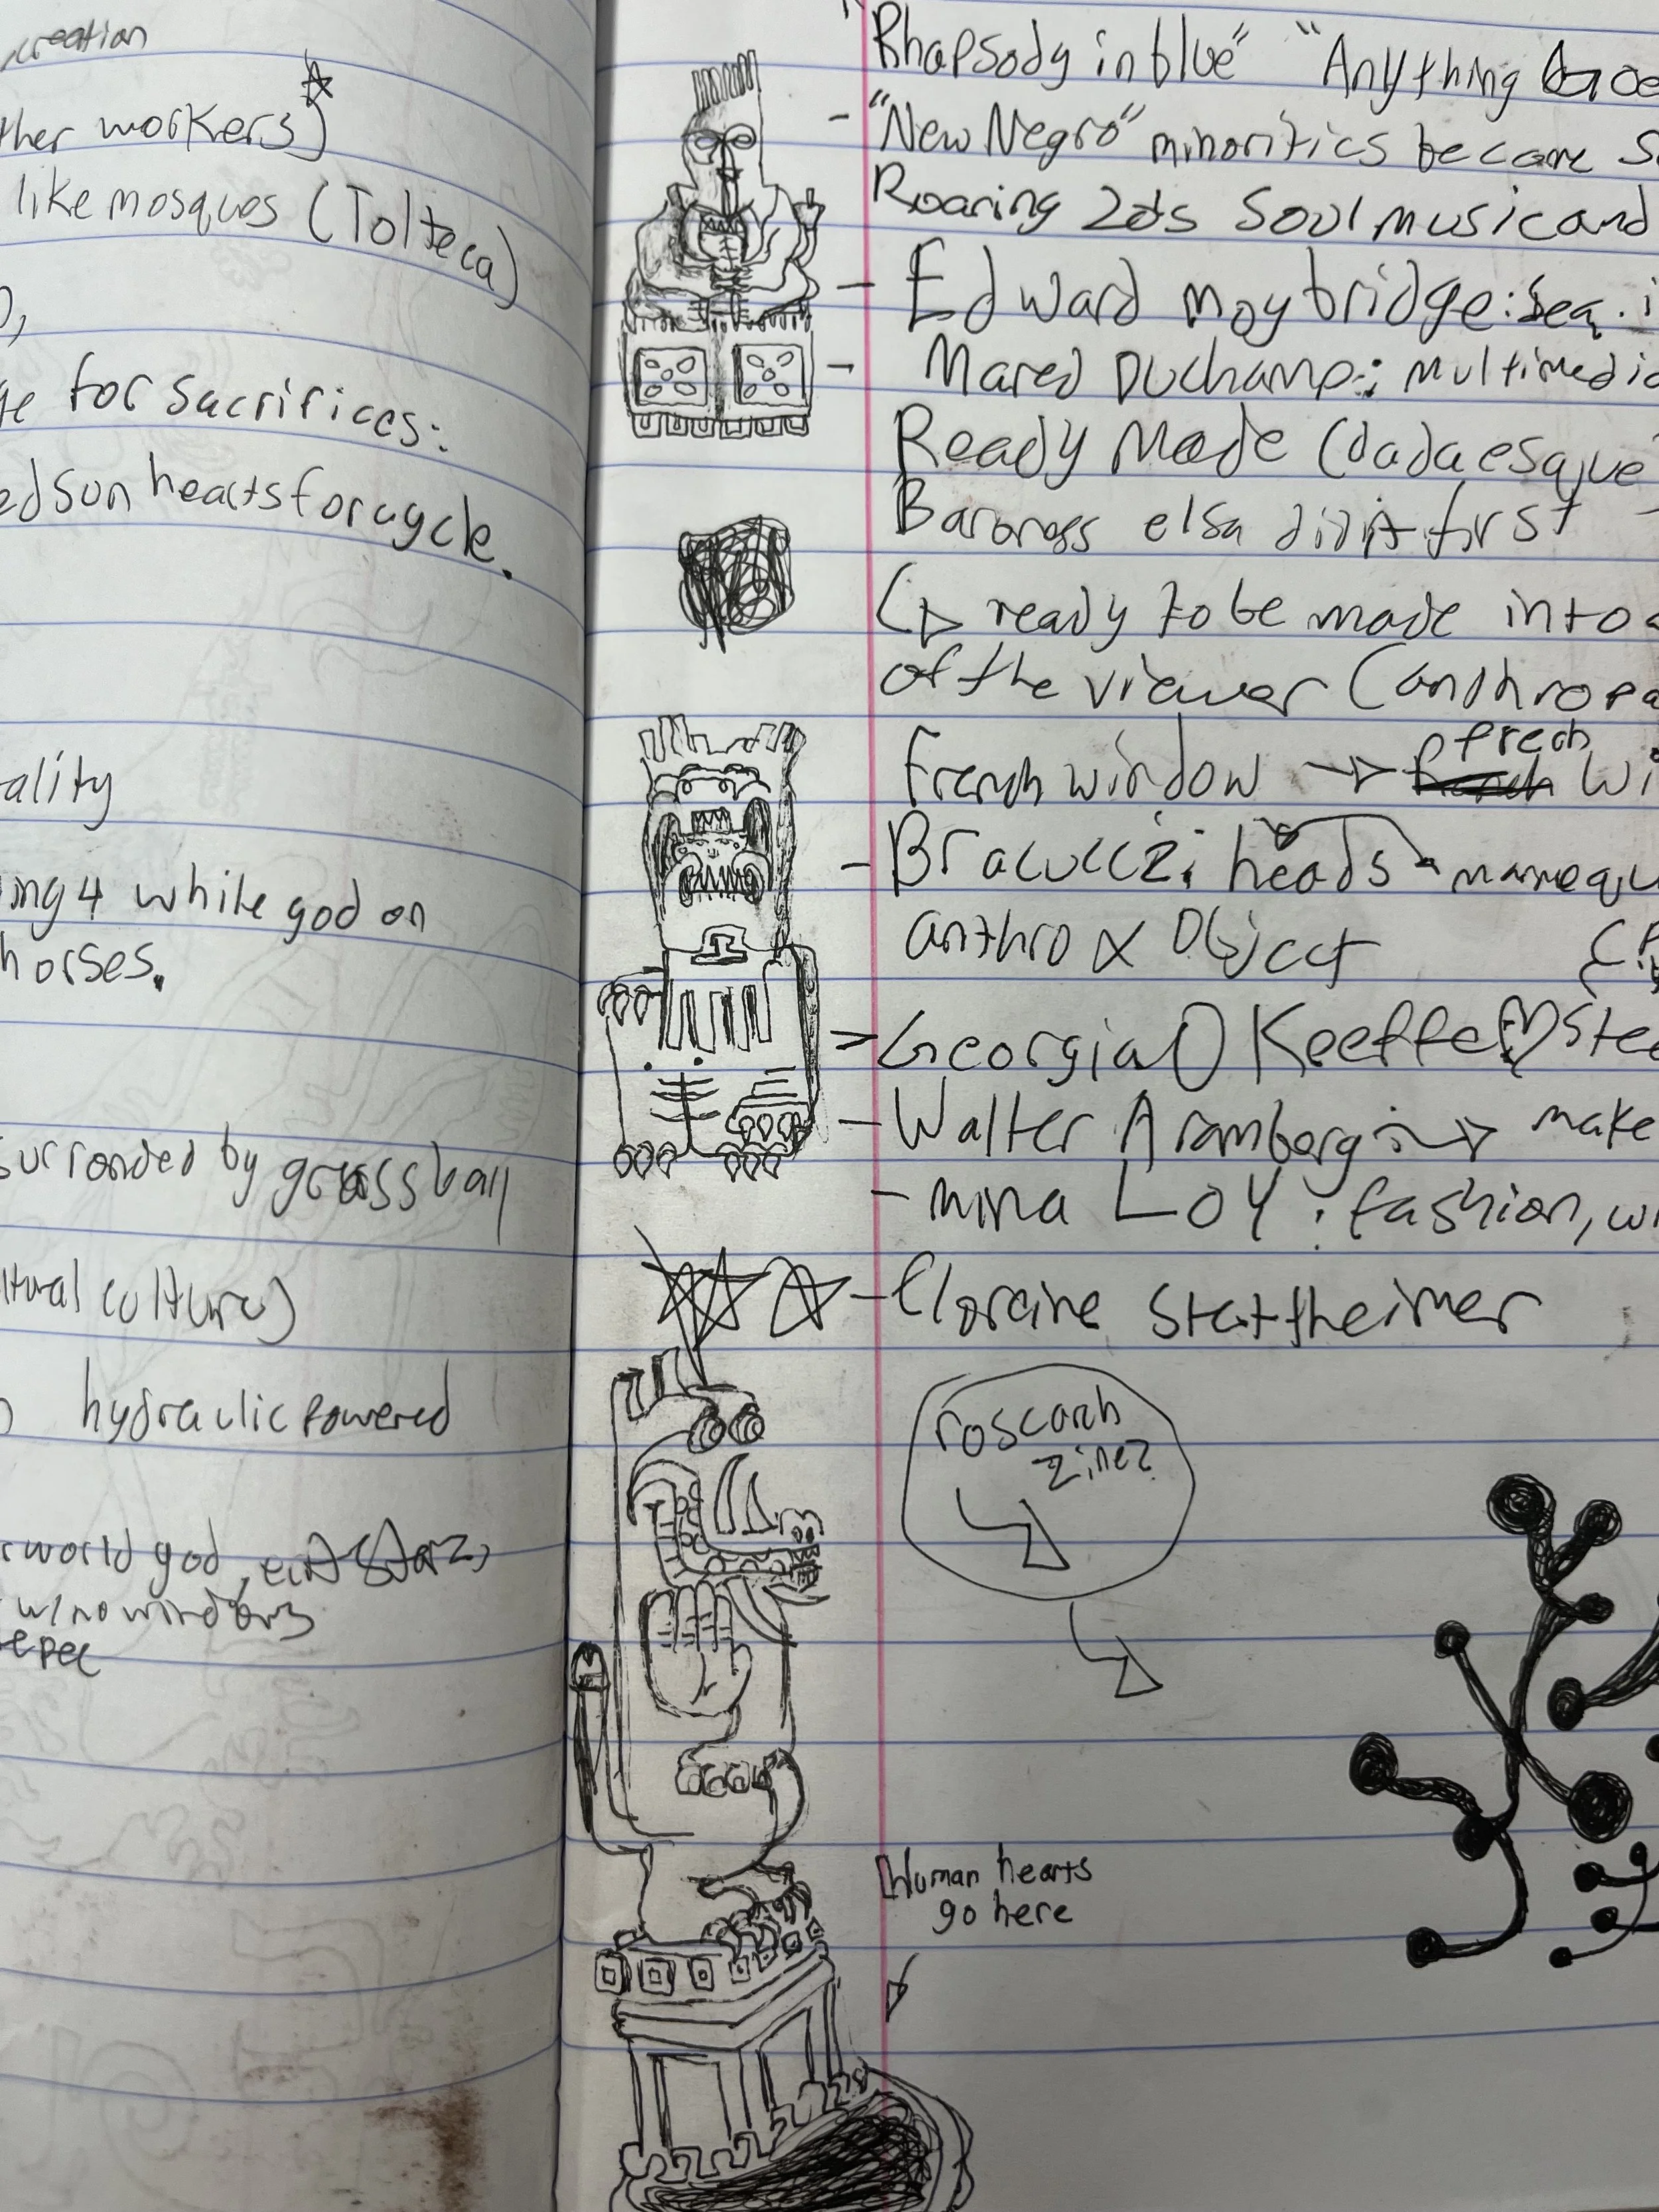 creation
ther workers)
like mosques (Tolteca)
ge for sacrifices:
ed sun hearts for cycle.
ality
ing 4 while god on
horses.
surronded by grass ball
ltural culture)
hydraulic powered
rworld god,
w/no windows
epec
"Rhapsody in blue" "Anything Goe
- "New Negro" minorities became s
Roaring 20s Soul music and
- Edward moybridge: Seq. i
- Marcel Duchamp: multimedia
Ready Made (dadaesque
Baroness elsa did it first -
ready to be made into a
of the viewer (anthropo
French window → fresh wi
- Bracucci: heads - manequ
anthro x Object
Georgia O Keeffe ♡ Stee
- Walter Aramberg: → make
- mina Loy: fashion, wr
- Florine Stattheimer
roscarh
zine?
Human hearts
go here